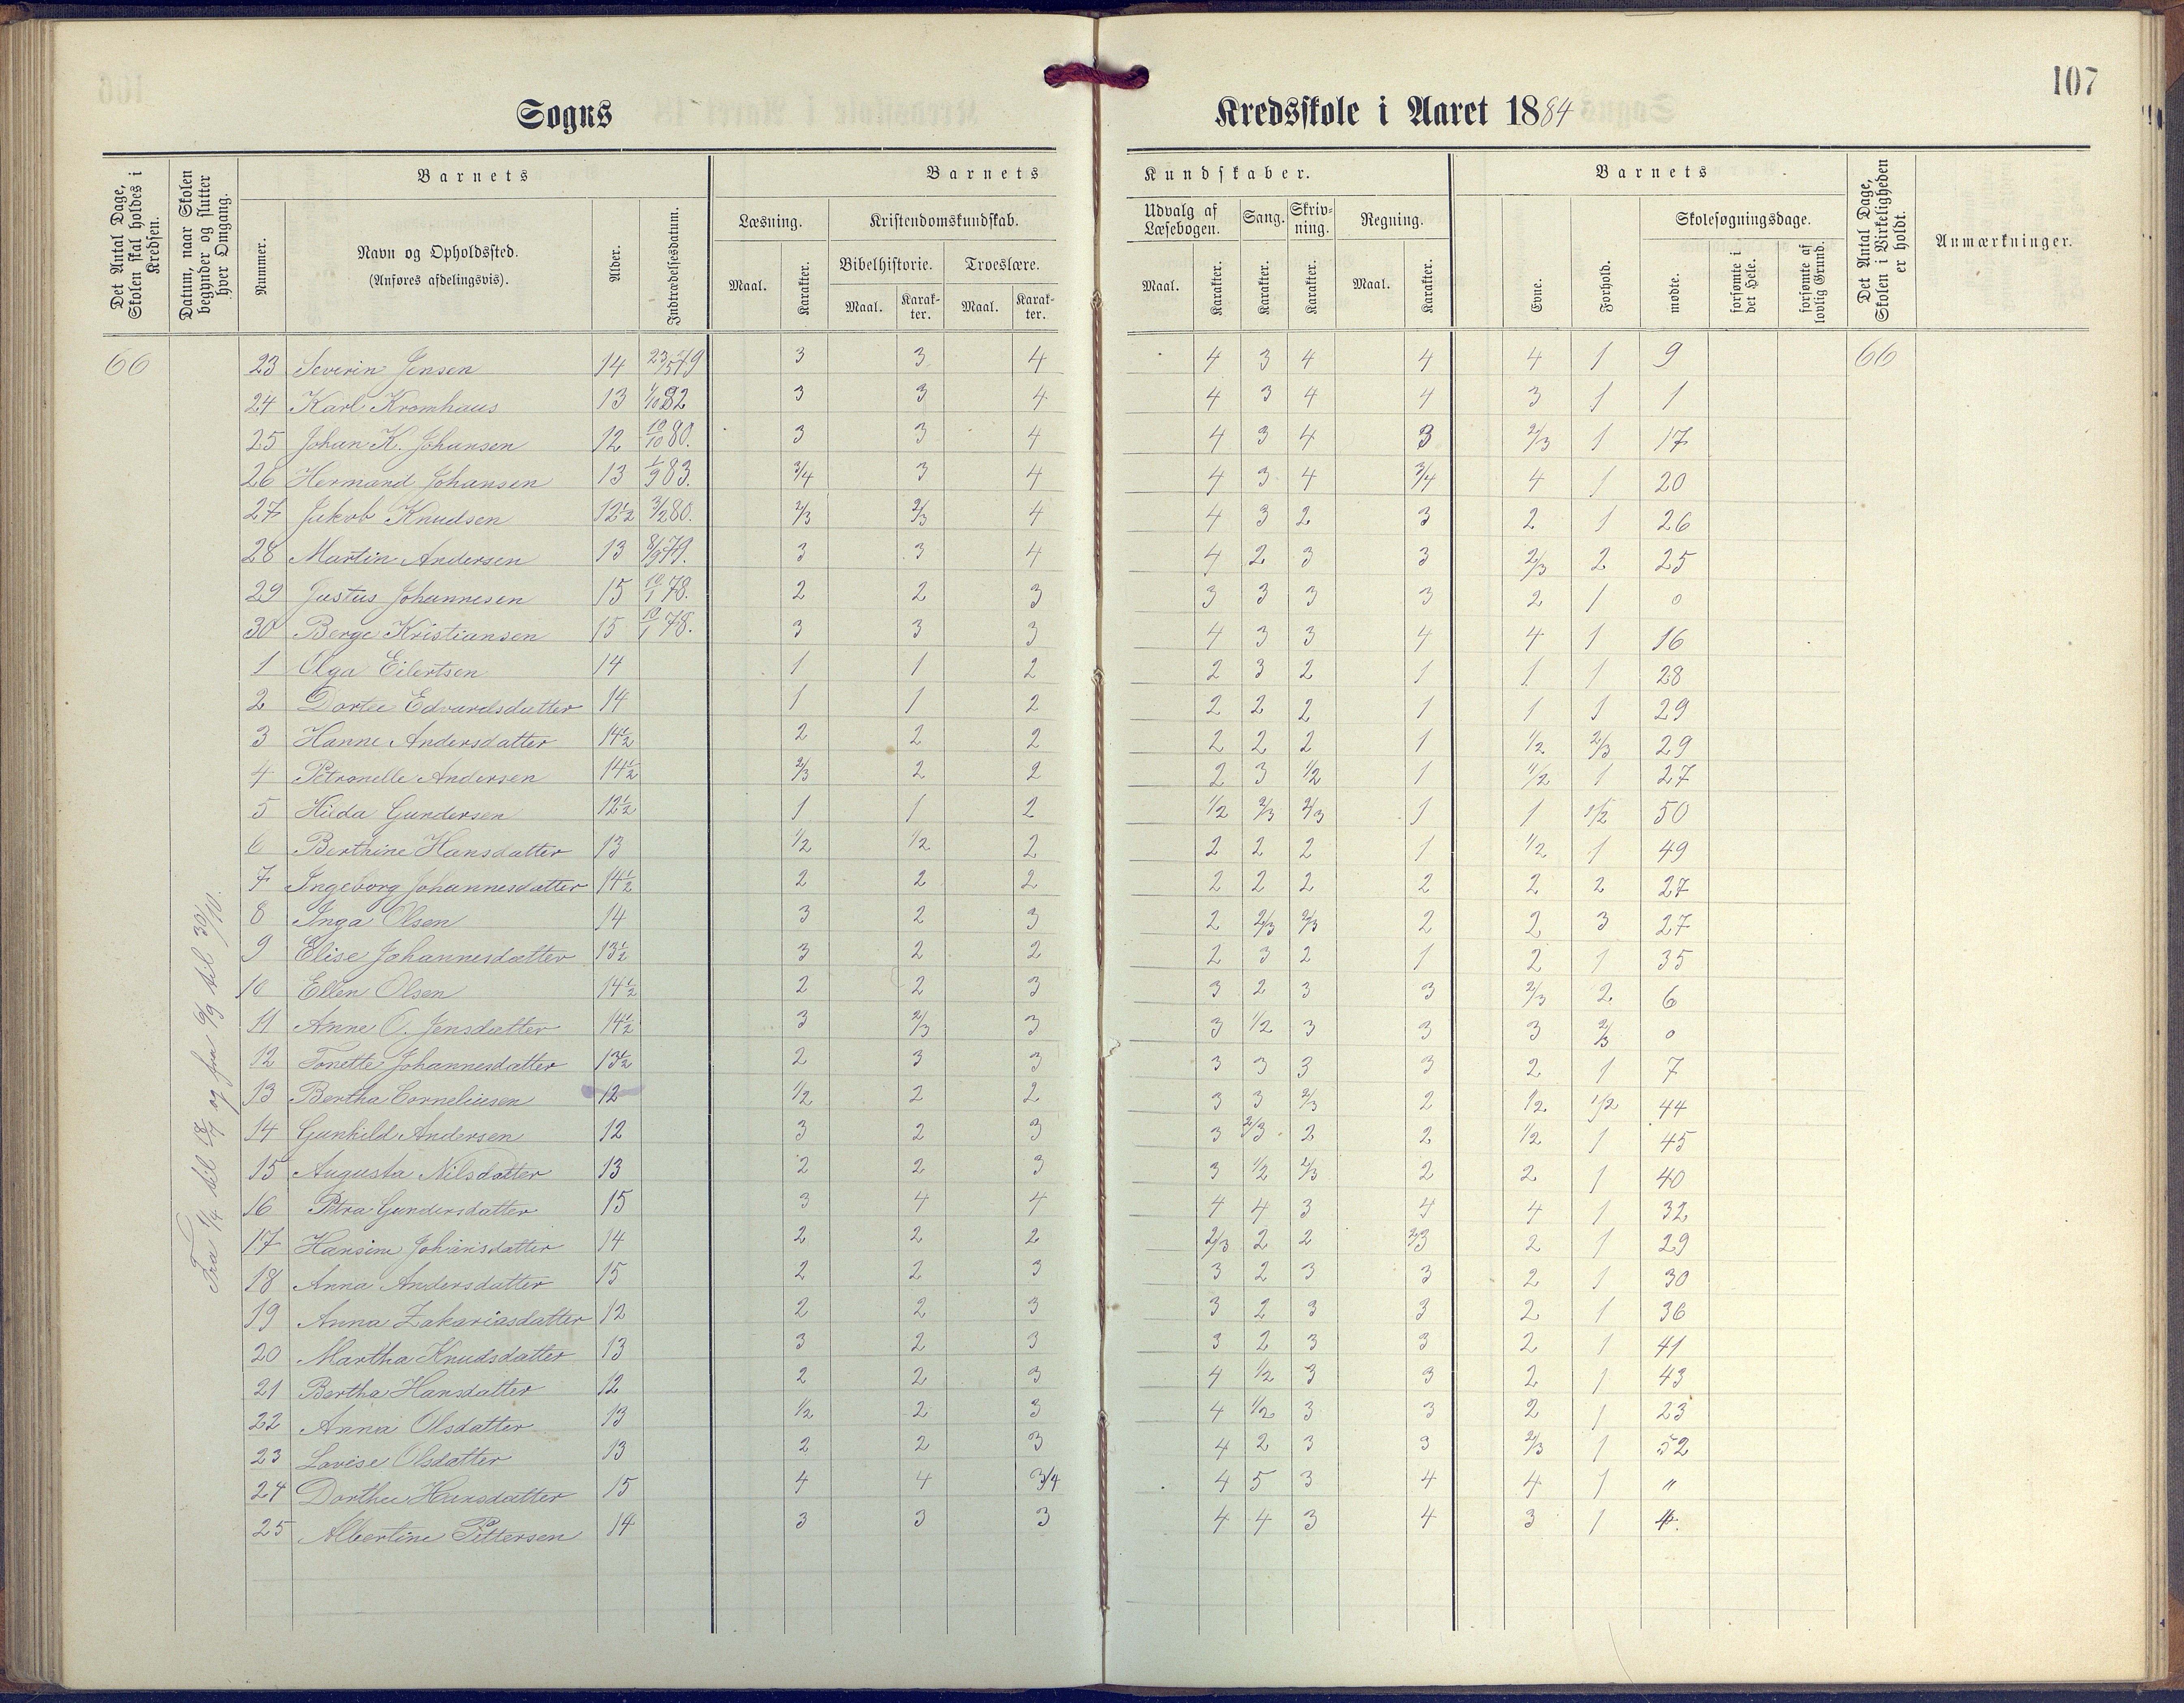 107
Sogns Kredsskole i Aaret 1884
Det Antal Dage, Skolen skal holdes i Kredsen.
Datum, naar Skolen begynder og slutter hver Omgang.
Barnets
Nummer.
Navn og Opholdssted.
(Anføres afdelingsvis).
Alder.
Indtrædelsesdatum.
Barnets Kundskaber.
Læsning.
Maal.
Karakter.
Kristendomskundskab.
Bibelhistorie.
Maal.
Karakter.
Troeslære.
Maal.
Karakter.
Udvalg af Læsebogen.
Maal.
Karakter.
Sang.
Karakter.
Skrivning.
Karakter.
Regning.
Maal.
Karakter.
Barnets
Evne.
Forhold.
Skolesøgningsdage.
mødte.
forsømte i det Hele.
forsømte af lovlig Grund.
Det Antal Dage, Skolen i Virkeligheden er holdt.
Anmærkninger.
Fra 1/4 til 18/7 og fra 6/9 til 30/10.
66 23 Severin Jensen 14 23/5 79 3 3 4 4 3 4 4 4 1 9 66
24 Karl Kromhaus 13 1/10 82 3 3 4 4 3 4 4 3 1 1
25 Johan K. Johansen 12 10/10 80. 3 3 4 4 3 4 3 2/3 1 17
26 Hermand Johansen 13 1/9 83. 3/4 3 4 4 3 4 3/4 4 1 20
27 Jakob Knudsen 12½ 3/2 80. 2/3 2/3 4 4 3 2 3 2 1 26
28 Martin Andersen 13 8/9 79. 3 3 4 4 2 3 3 2/3 2 25
29 Justus Johannesen 15 10/1 78. 2 2 3 3 3 3 3 2 1 0
30 Berge Kristiansen 15 10/1 78. 3 3 3 4 3 3 4 4 1 16
1 Olga Eilertsen 14 1 1 2 2 3 2 1 1 1 28
2 Dortee Edvardsdatter 14 1 1 2 2 2 2 1 1 1 29
3 Hanne Andersdatter 14½ 2 2 2 2 2 2 1 1/2 2/3 29
4 Petronelle Andersen 14½ 2/3 2 2 2 3 1/2 1 1/2 1 27
5 Hilda Gundersen 12½ 1 1 2 1/2 2/3 2/3 1 1 1/2 50
6 Berthine Hansdatter 13 1/2 1/2 2 2 2 2 1 1/2 1 49
7 Ingeborg Johannesdatter 14½ 2 2 2 2 2 2 2 2 2 27
8 Inga Olsen 14 3 2 3 2 2/3 2/3 2 2 3 27
9 Elise Johannesdatter 13½ 3 2 2 2 3 2 1 2 1 35
10 Ellen Olsen 14½ 2 2 3 3 2 3 3 2/3 2 6
11 Anne O. Jensdatter 14½ 3 2/3 3 3 1/2 3 3 3 2/3 0
12 Tonette Johannesdatter 13½ 2 3 3 3 3 3 3 2 1 7
13 Bertha Corneliusen 12 1/2 2 2 3 3 2/3 2 1/2 1/2 44
14 Gunhild Andersen 12 3 2 3 3 2/3 2 2 1/2 1 45
15 Augusta Nilsdatter 13 2 2 3 3 1/2 2/3 2 2 1 40
16 Petra Gundersdatter 15 3 4 4 4 4 3 4 4 1 32
17 Hansine Johansdatter 14 2 2 2 2/3 2 2 2/3 2 1 29
18 Anna Andersdatter 15 2 2 3 3 2 3 3 2 1 30
19 Anna Zakariasdatter 12 2 2 3 3 2 3 3 2 1 36
20 Martha Knudsdatter 13 3 2 3 3 2 3 3 2 1 41
21 Bertha Hansdatter 12 2 2 3 4 1/2 3 3 2 1 43
22 Anna Olsdatter 13 1/2 2 3 4 1/2 3 3 2 1 23
23 Lovise Olsdatter 13 2 2 3 4 2 3 3 2/3 1 52
24 Dorthee Hansdatter 15 4 4 3/4 4 5 3 4 4 1 "
25 Albertine Pettersen 14 3 3 3 4 4 3 4 3 1 4.